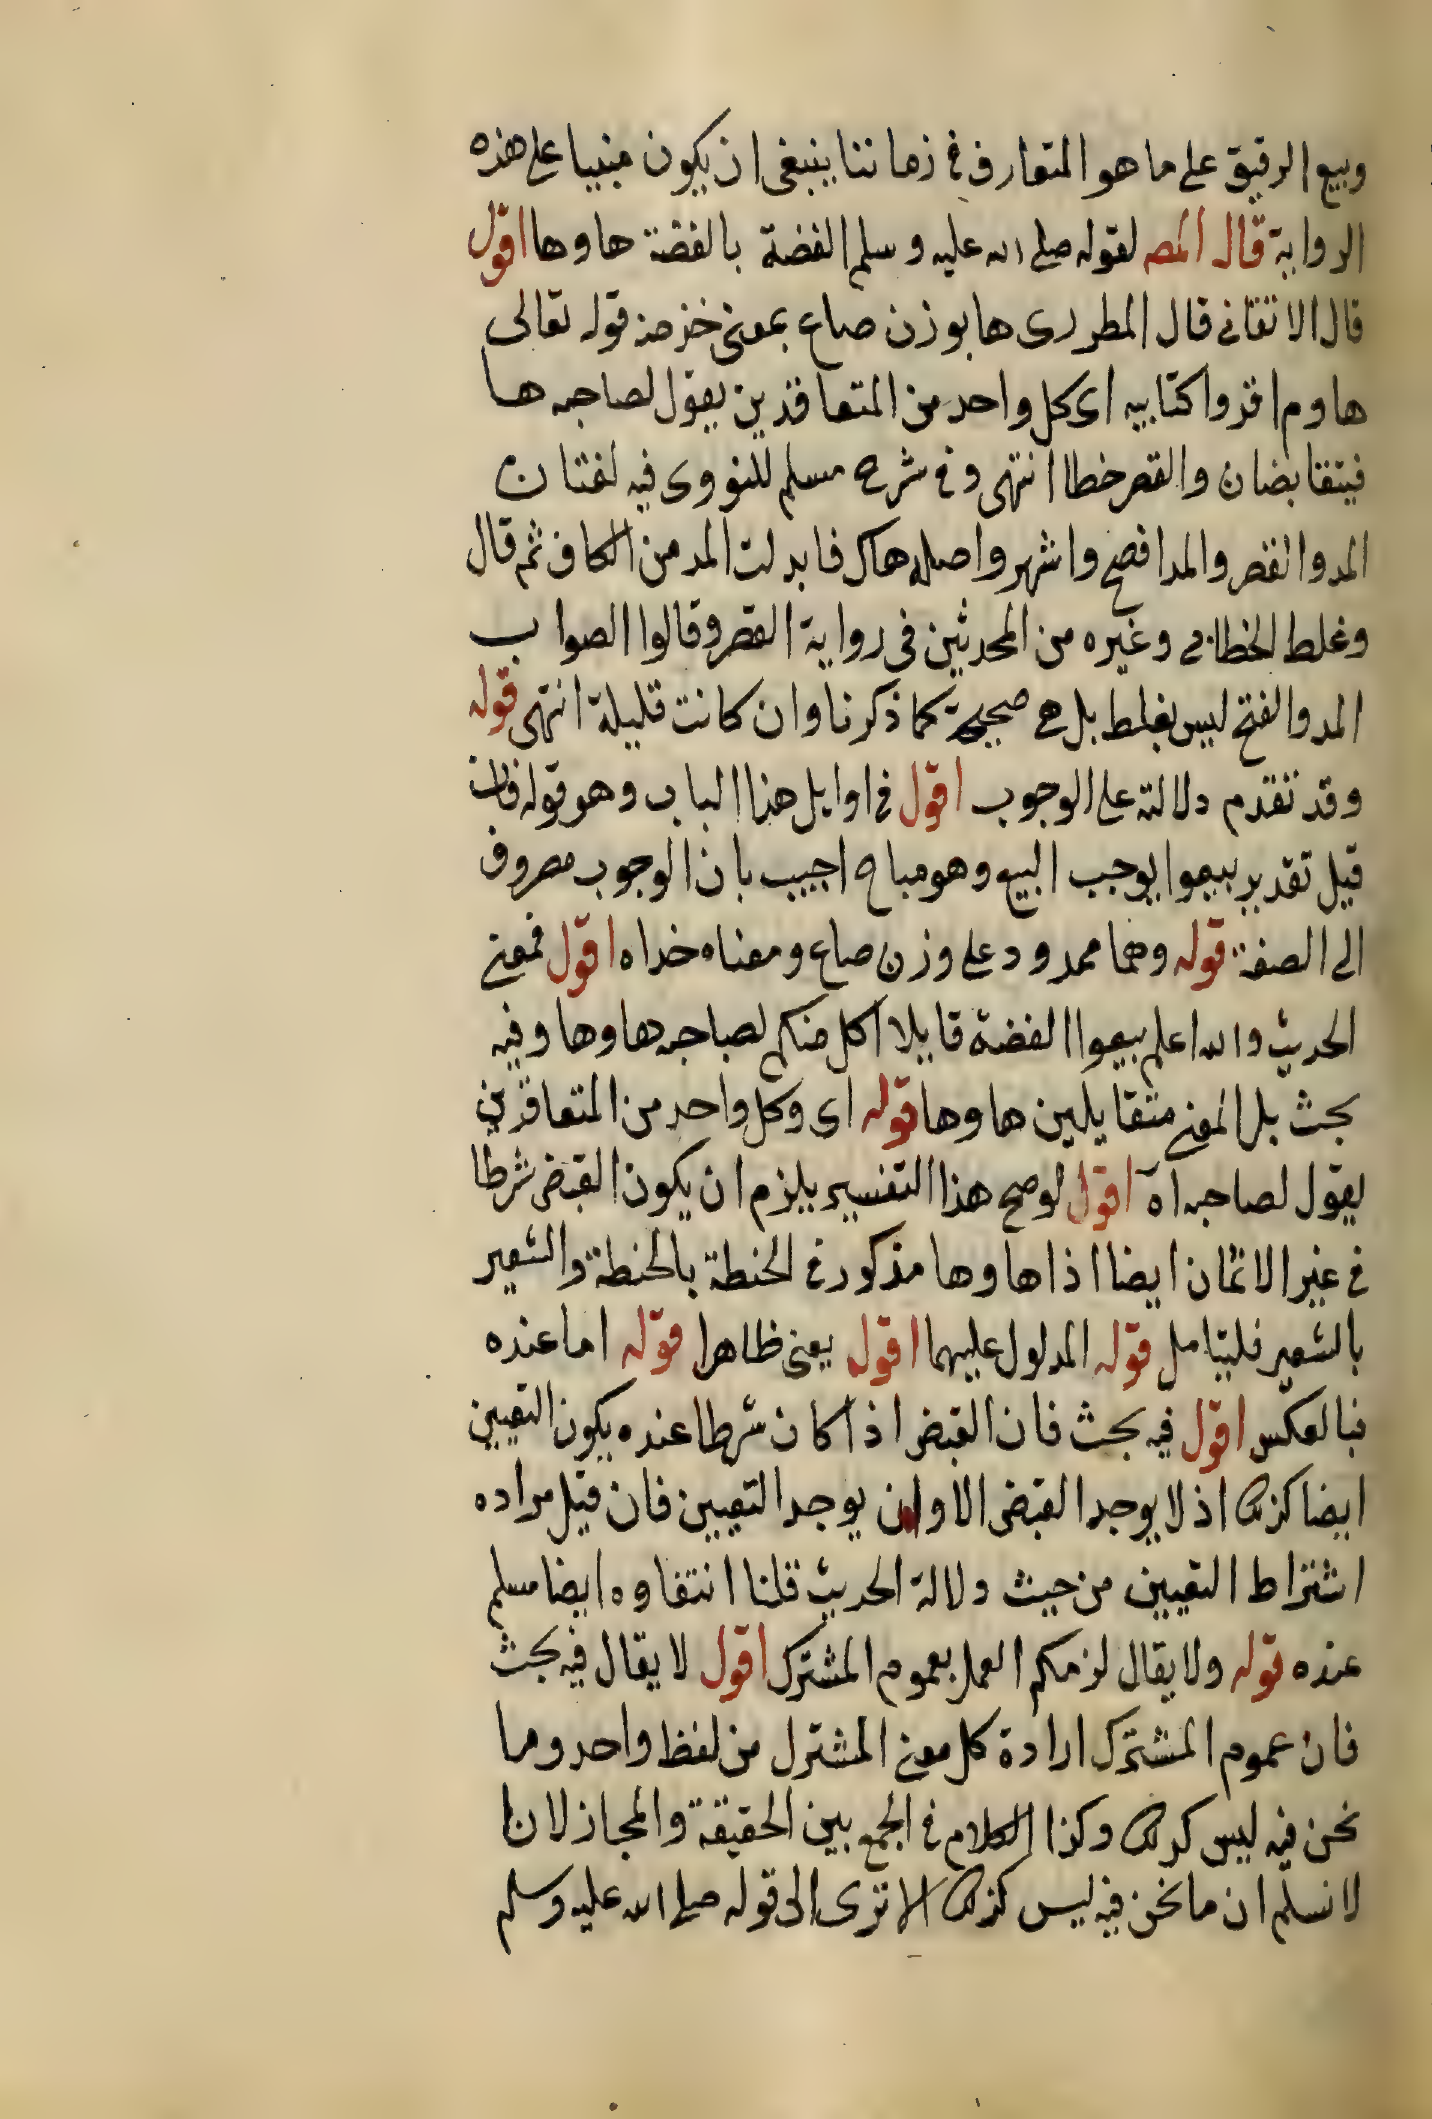 وبيع الرقيق على ما هو المتعارف في زماننا ينبغي ان يكون مبنيا على هذه
الرواية قال المص لقوله صلى الله عليه وسلم الفضة بالفضة ها وها اقول
قال الاتقاني قال المطرزى ها بوزن صاع بمعنى خذ منه قوله تعالى
هاوم اقروا كتابيه اى كل واحد من المتعاقدين يقول لصاحبه ها
فيتقابضان والقصر خطا انتهى وفي شرح مسلم للنووى فيه لغتان
المد والقصر والمد افصح واشهر واصله هاك فابدلت المد من الكاف ثم قال
وغلط الخطابي وغيره من المحدثين في رواية القصر وقالوا الصواب
المد والفتح ليس بغلط بل هي صحيحة كما ذكرنا وان كانت قليلة انتهى قوله
وقد تقدم دلالته على الوجوب اقول في اوايل هذا الباب وهو قوله فان
قيل تقدير بيعوا يوجب البيع وهو مباح اجيب بان الوجوب مصروف
الى الصفة قوله وهما ممدود على وزن صاع ومعناه خذ اه اقول فمعنى
الحديث والله اعلم بيعوا الفضة قايلا كل منكم لصاحبه ها وها وفيه
بحث بل المعنى متقايلين ها وها قوله اى وكل واحد من المتعاقدين
يقول لصاحبه اه اقول لو صح هذا التفسير يلزم ان يكون القبض شرطا
في غير الاثمان ايضا اذ ها وها مذكور في الحنطة بالحنطة والشعير
بالشعير فليتامل قوله المدلول عليهما اقول يعنى ظاهرا قوله اما عنده
فبالعكس اقول فيه بحث فان القبض اذا كان شرطا عنده يكون التعيين
ايضا كذلك اذ لا يوجد القبض الا وان يوجد التعيين فان قيل مراده
اشتراط التعيين من حيث دلالة الحديث قلنا انتفاوه ايضا مسلم
عنده قوله ولا يقال لزمكم العمل بعموم المشترك اقول لا يقال فيه بحث
فان عموم المشترك ارادة كل معنى المشترك من لفظ واحد وما
نحن فيه ليس كذلك وكذا الكلام في الجمع بين الحقيقة والمجاز لانا
لا نسلم ان ما نحن فيه ليس كذلك الا ترى الى قوله صلى الله عليه وسلم